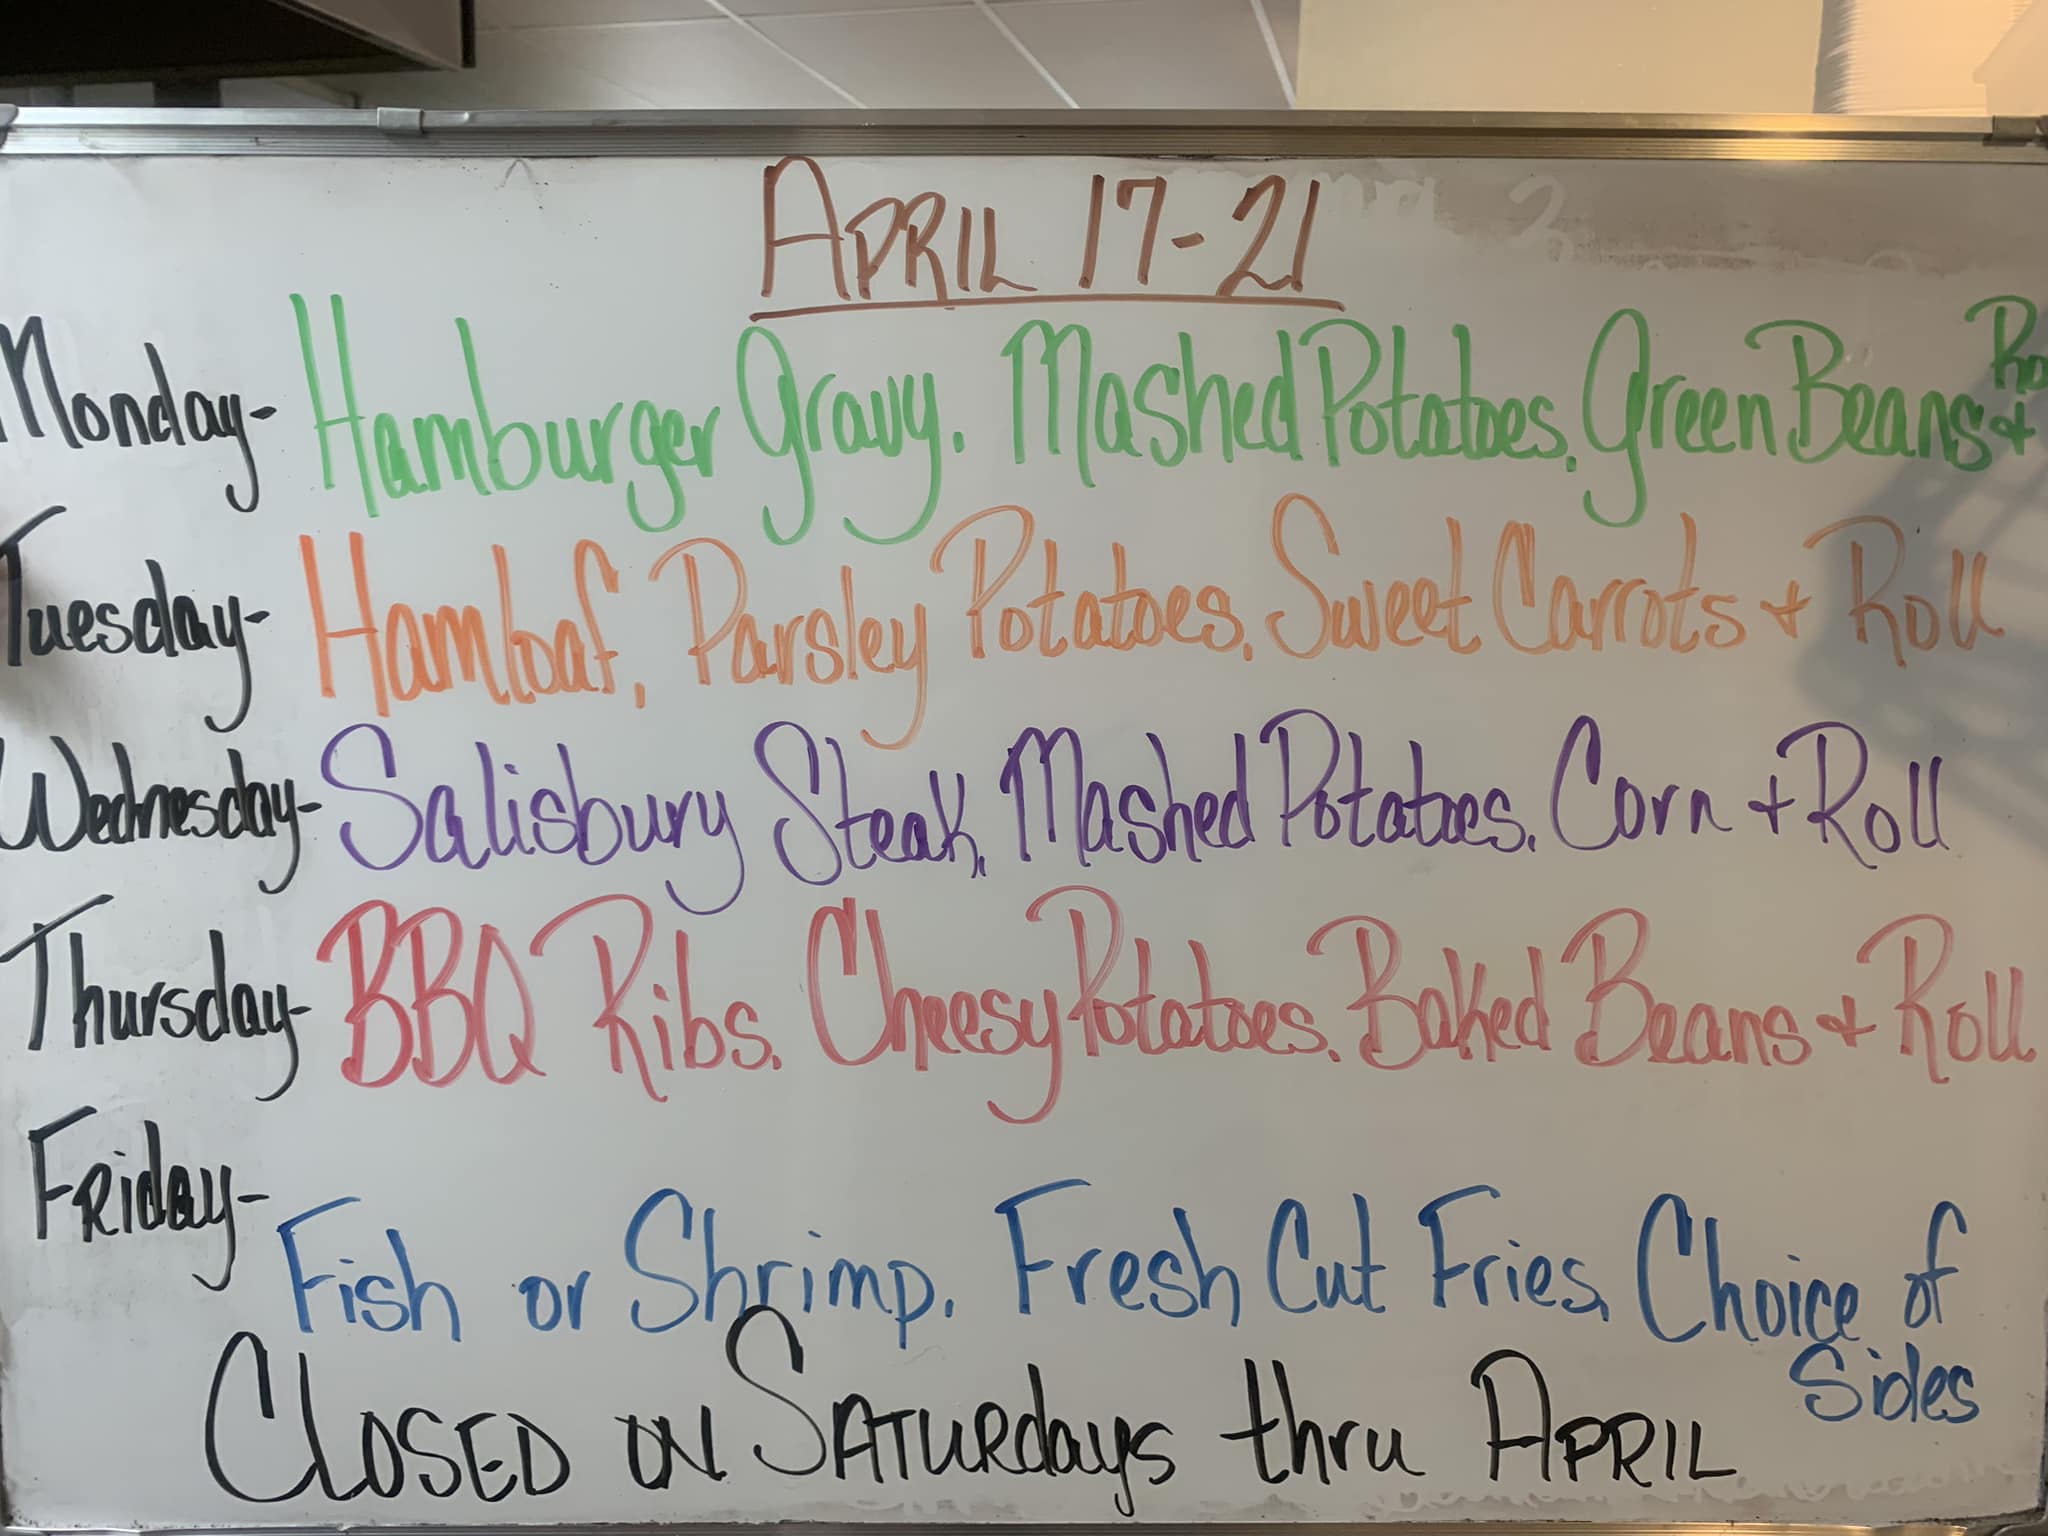 APRIL 17-21
Monday- Hamburger Gravy. Mashed Potatoes. Green Beans + Ro
Tuesday- Hamloaf, Parsley Potatoes. Sweet Carrots + Roll
Wednesday- Salisbury Steak. Mashed Potatoes. Corn + Roll
Thursday- BBQ Ribs. Cheesy Potatoes. Baked Beans + Roll
Friday-
Fish or Shrimp. Fresh Cut Fries. Choice of
Sides
CLOSED ON SATURdays thru APRIL